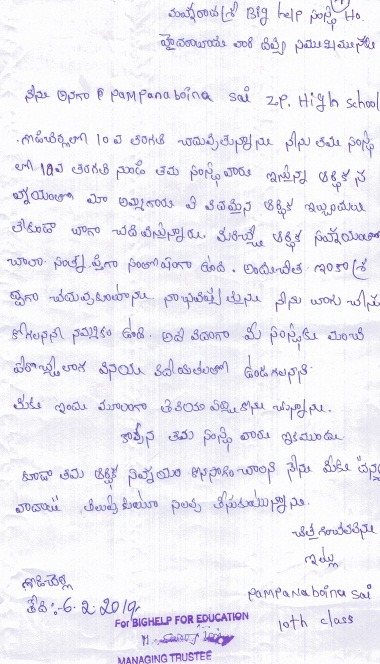 మహారాజశ్రీ Big help సంస్థ Ho.
హైదరాబాదు వారి దివ్య సముఖమునకు
నేను అనగా P pampanaboina sai Z.P. High school
గుడిచెర్లలో 10 వ తరగతి చదువుతున్నాను నేను తమ సంస్థ
లో 10వ తరగతి నుండి తమ సంస్థ వారు ఇస్తున్న ఆర్థిక స
హాయంతో మా అమ్మగారు ఏ విధమైన ఆర్థిక ఇబ్బందులు
లేకుండా బాగా చదివిస్తున్నారు. మీరిచ్చే ఆర్థిక సహాయంతో
చాలా సంతృప్తిగా సంతోషంగా ఉంది. అందుచేత ఇంకా శ్ర
ద్ధగా చదువుకుంటాను నా భవిష్యత్తును నేను బాగు చేసు
కోగలనని నమ్మకం ఉంది. అదే విధంగా మీ సంస్థకు మంచి
పేరొచ్చేలాగ వినయ విధేయతలతో ఉండగలనని
మీకు ఇందు మూలంగా తెలియపర్చుకొను చున్నాను.
కావున తమ సంస్థ వారు ఇకముందు
కూడా తమ ఆర్థిక సహాయం కొనసాగించాలని నేను మీకు ధన్య
వాదాలు తెలుపుకుంటూ సెలవు తీసుకుంటున్నాను.
చిత్తగించవలెను
ఇట్లు
తేది :- 6.2.2019
pampanaboina sai
10th class
For BIGHELP FOR EDUCATION
MANAGING TRUSTEE